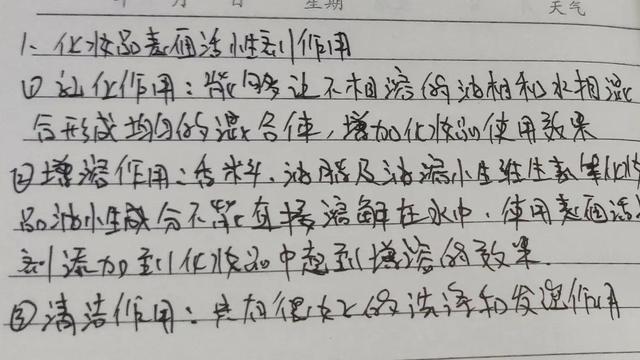 星期 天气
1、化妆品表面活性剂作用
①乳化作用：能够让不相溶的油相和水相混
合形成均匀的混合体，增加化妆品使用效果
②增溶作用：香料、油脂及油溶小生维生素等化妆
品油小生成分不能直接溶解在水中，使用表面活
剂添加到化妆品中起到增溶的效果.
③清洁作用：具有很好的洗涤和发泡作用